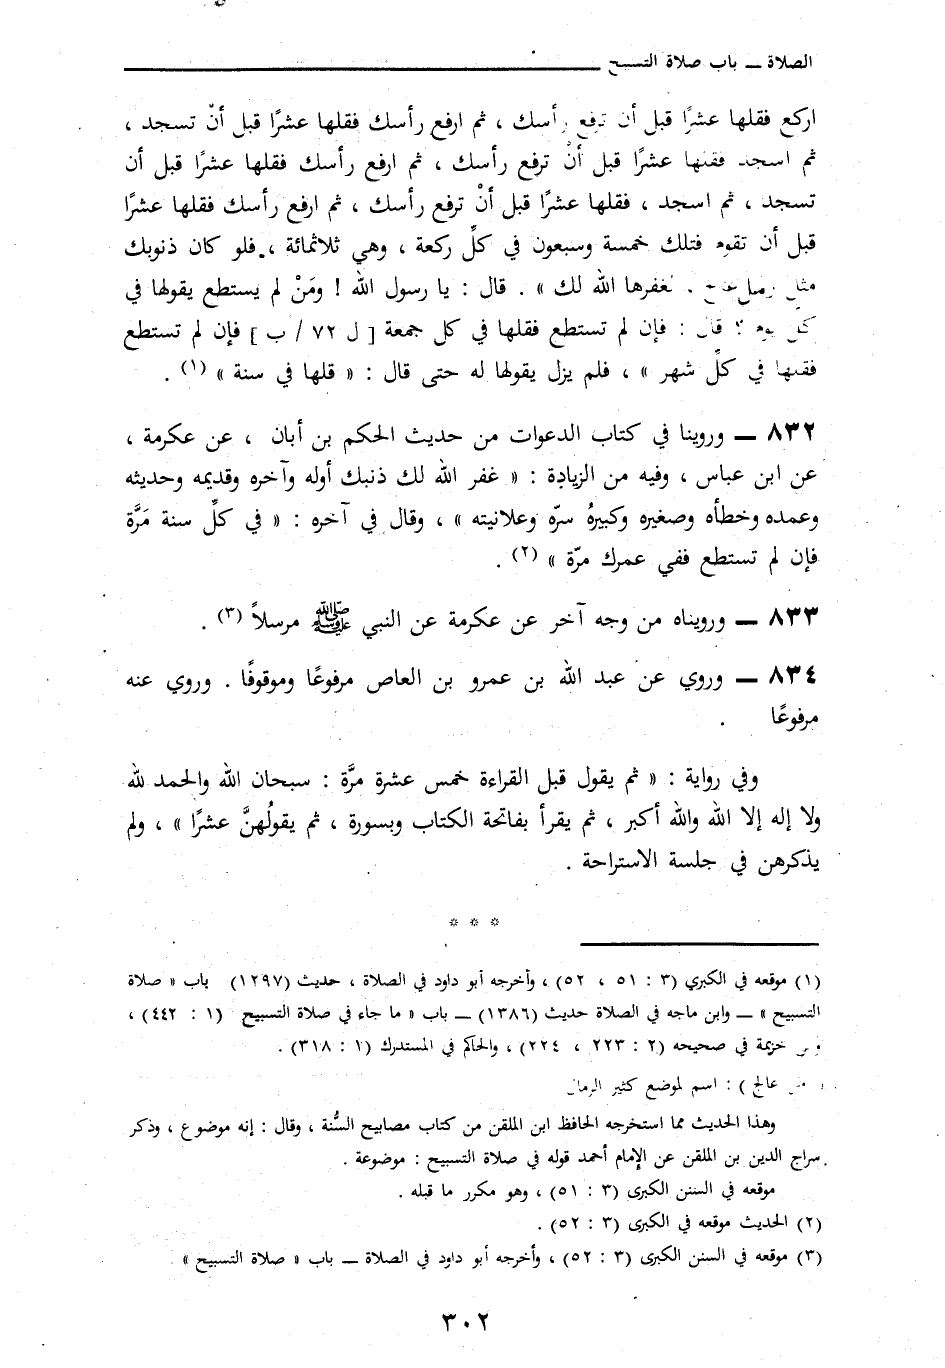 الصلاة ــ باب صلاة التسبيح
اركع فقلها عشرًا قبل أن ترفع رأسك ، ثم ارفع رأسك فقلها عشرًا قبل أنْ تسجد ،
ثم اسجد فقلها عشرًا قبل أنْ ترفع رأسك ، ثم ارفع رأسك فقلها عشرًا قبل أن
تسجد ، ثم اسجد ، فقلها عشرًا قبل أنْ ترفع رأسك ، ثم ارفع رأسك فقلها عشرًا
قبل أن تقوم فتلك خمسة وسبعون في كلِّ ركعة ، وهي ثلاثمائة ، فلو كان ذنوبك
مثل رمل عالج . غفرها الله لك » . قال : يا رسول الله ! ومَنْ لم يستطع يقولها في
كل يوم ؟ قال : فإن لم تستطع فقلها في كل جمعة [ ل ٧٢ / ب ] فإن لم تستطع
فقلها في كلِّ شهر » ، فلم يزل يقولها له حتى قال : « قلها في سنة » (١) .
٨٣٢ ــ وروينا في كتاب الدعوات من حديث الحكم بن أبان ، عن عكرمة ،
عن ابن عباس ، وفيه من الزيادة : « غفر الله لك ذنبك أوله وآخره وقديمه وحديثه
وعمده وخطأه وصغيره وكبيرهُ سرّه وعلانيته » ، وقال في آخره : « في كلِّ سنة مَرَّة
فإن لم تستطع ففي عمرك مرّة » (٢) .
٨٣٣ ــ ورويناه من وجه آخر عن عكرمة عن النبي ﷺ مرسلاً (٣) .
٨٣٤ ــ وروي عن عبد الله بن عمرو بن العاص مرفوعًا وموقوفًا . وروي عنه
مرفوعًا .
وفي رواية : « ثم يقول قبل القراءة خمس عشرة مرَّة : سبحان الله والحمد لله
ولا إله إلا الله والله أكبر ، ثم يقرأ بفاتحة الكتاب وبسورة ، ثم يقولُهنَّ عشرًا » ، ولم
يذكرهن في جلسة الاستراحة .
* * *
(١) موقعه في الكبري (٣ : ٥١ ، ٥٢) ، وأخرجه أبو داود في الصلاة ، حديث (١٢٩٧) باب « صلاة
التسبيح » ــ وابن ماجه في الصلاة حديث (١٣٨٦) ــ باب « ما جاء في صلاة التسبيح (١ : ٤٤٢) ،
خزيمة في صحيحه (٢ : ٢٢٣ ، ٢٢٤) ، والحاكم في المستدرك (١ : ٣١٨) .
عالج ) : اسم لموضع كثير الرمال
وهذا الحديث مما استخرجه الحافظ ابن الملقن من كتاب مصابيح السُّنة ، وقال : إنه موضوع ، وذكر
سراج الدين بن الملقن عن الإمام أحمد قوله في صلاة التسبيح : موضوعة .
موقعه في السنن الكبرى (٣ : ٥١) ، وهو مكرر ما قبله .
(٢) الحديث موقعه في الكبرى (٣ : ٥٢) .
(٣) موقعه في السنن الكبرى (٣ : ٥٢) ، وأخرجه أبو داود في الصلاة ــ باب « صلاة التسبيح » .
٣٠٢